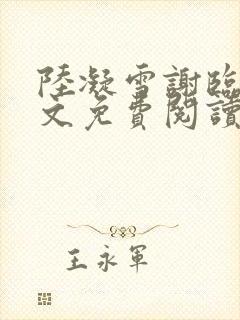 陸凝雪謝臨
文免費閱讀
王永軍